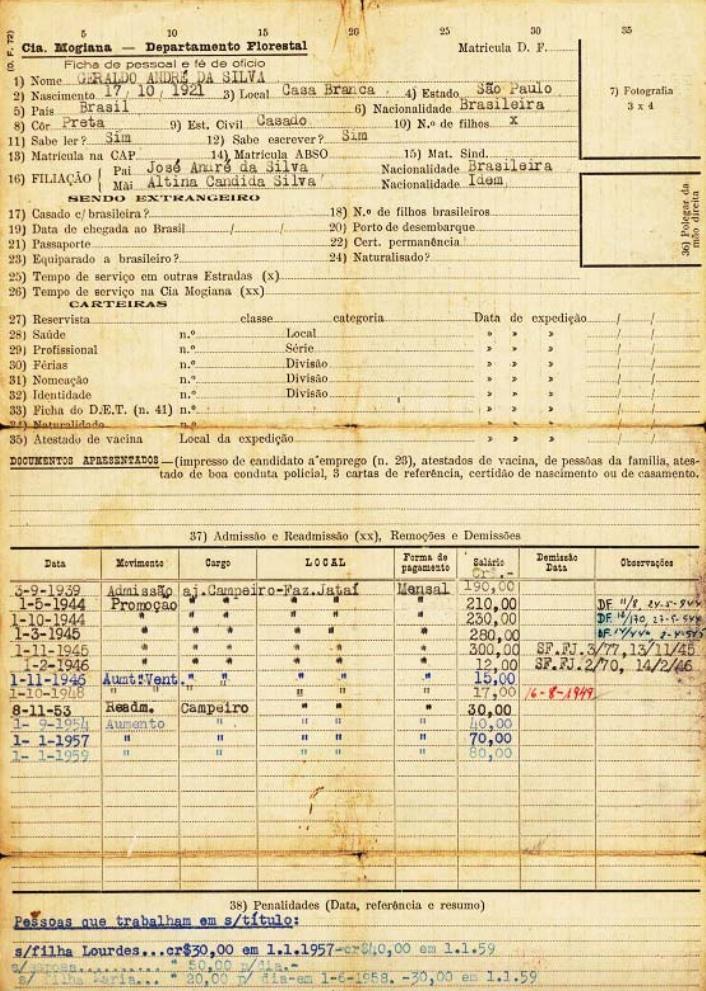 (D. F. 72)
5 10 15 20 25 30 35
Cia. Mogiana — Departamento Florestal
Matrícula D. F.
Ficha de pessoal e fé de oficio
1) Nome GERALDO ANDRÉ DA SILVA
2) Nascimento 17/10/1921 3) Local Casa Branca 4) Estado São Paulo
7) Fotografia
3 x 4
5) País Brasil 6) Nacionalidade Brasileira
8) Côr Preta 9) Est. Civil Casado 10) N.o de filhos x
11) Sabe ler? Sim 12) Sabe escrever? Sim
13) Matrícula na CAP 14) Matrícula ABSO 15) Mat. Sind.
16) FILIAÇÃO { Pai José André da Silva Nacionalidade Brasileira
Mãi Altina Candida Silva Nacionalidade Idem
36) Polegar da mão direita
SENDO EXTRANGEIRO
17) Casado c/ brasileira? 18) N.o de filhos brasileiros
19) Data de chegada ao Brasil / / 20) Porto de desembarque
21) Passaporte 22) Cert. permanência
23) Equiparado a brasileiro? 24) Naturalisado?
25) Tempo de serviço em outras Estradas (x)
26) Tempo de serviço na Cia Mogiana (xx)
CARTEIRAS
27) Reservista classe categoria Data de expedição / /
28) Saúde n.o Local » » » / /
29) Profissional n.o Série » » » / /
30) Férias n.o Divisão » » » / /
31) Nomeação n.o Divisão » » » / /
32) Identidade n.o Divisão » » » / /
33) Ficha do D.E.T. (n. 41) n.o » » » / /
34) Naturalidade
35) Atestado de vacina Local da expedição » » » / /
DOCUMENTOS APRESENTADOS—(impresso de candidato a emprego (n. 23), atestados de vacina, de pessôas da familia, ates-
tado de boa conduta policial, 3 cartas de referência, certidão de nascimento ou de casamento.
37) Admissão e Readmissão (xx), Remoções e Demissões
Data Movimento Cargo LOCAL Forma de pagamento Salário Demissão Data Observações
Cr$.-
3-9-1939 Admissão aj.Campeiro-Faz.Jataí Mensal 190,00
1-5-1944 Promoção " " " " " 210,00 DF 11/8, 24-5-944
1-10-1944 " " " " " " 230,00
1-3-1945 " " " " " " 280,00
1-11-1945 " " " " " " 300,00 SF.FJ.3/77,13/11/45
1-2-1946 " " " " " " 12,00 SF.FJ.2/70, 14/2/46
1-11-1946 Aumt:Vent. " " " " " 15,00
1-10-1948 " " " " " 17,00 16-8-1949
8-11-53 Readm. Campeiro " " " 30,00
1- 9-1954 Aumento " " " 40,00
1- 1-1957 " " " " 70,00
1- 1-1959 " " " " 80,00
38) Penalidades (Data, referência e resumo)
Pessoas que trabalham em s/título:
s/filha Lourdes...cr$30,00 em 1.1.1957-cr$40,00 em 1.1.59
" 50,00 p/dia.-
s/ filha Maria... " 20,00 p/ dia-em 1-6-1958. -30,00 em 1.1.59